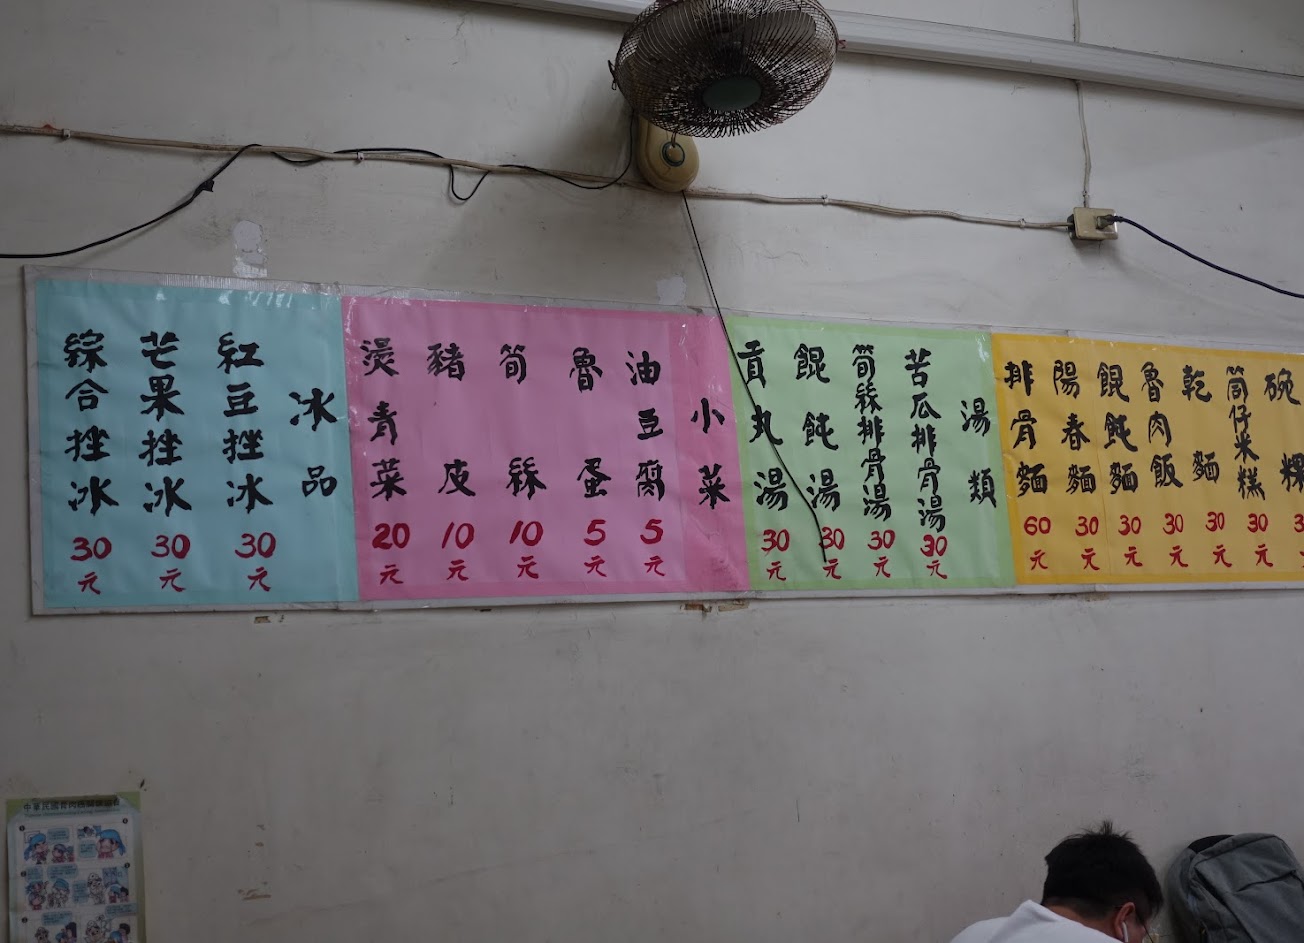 碗粿
筒仔米糕 30元
乾麵 30元
魯肉飯 30元
餛飩麵 30元
陽春麵 30元
排骨麵 60元
湯類
苦瓜排骨湯 30元
筍絲排骨湯 30元
餛飩湯 30元
貢丸湯 30元
小菜
油豆腐 5元
魯蛋 5元
筍絲 10元
豬皮 10元
燙青菜 20元
冰品
紅豆挫冰 30元
芒果挫冰 30元
綜合挫冰 30元
中華民國